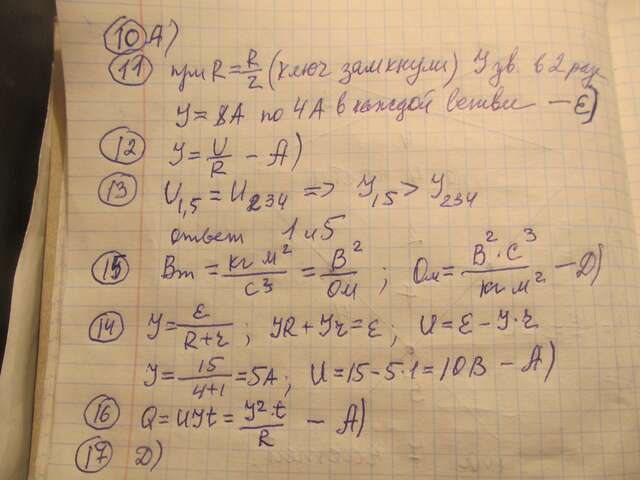 10 A)
11 при R = R/2 (ключ замкнули) У ув. в 2 раз
У = 8А по 4А в каждой ветви – E)
12 У = U/R – A)
13 U1,5 = U234 => У1,5 > У234
ответ 1 и 5
15 Вт = кг м²/с³ = В²/Ом ; Ом = В²·с³/кг м² – D)
14 У = ε/(R+r) ; УR + Уr = ε ; U = ε – У·r
У = 15/(4+1) = 5А ; U = 15 – 5·1 = 10В – A)
16 Q = UУt = У²·t/R – A)
17 D)